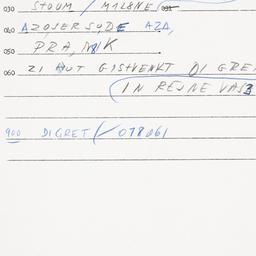 030 STOUM / M1L8NE/
040 AZOJERSUDE AZA,
050 PRA, NIK
060 21 AUT GISTVENKT DI GRE
IN REJNE VAS3
900 DIGRET / 078061